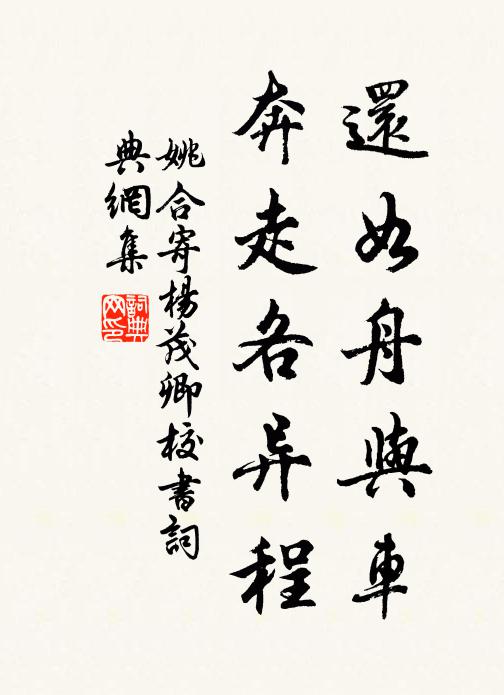 還如舟與車
奔走各异程
姚合寄楊茂卿校書詞
典網集
詞典
网印